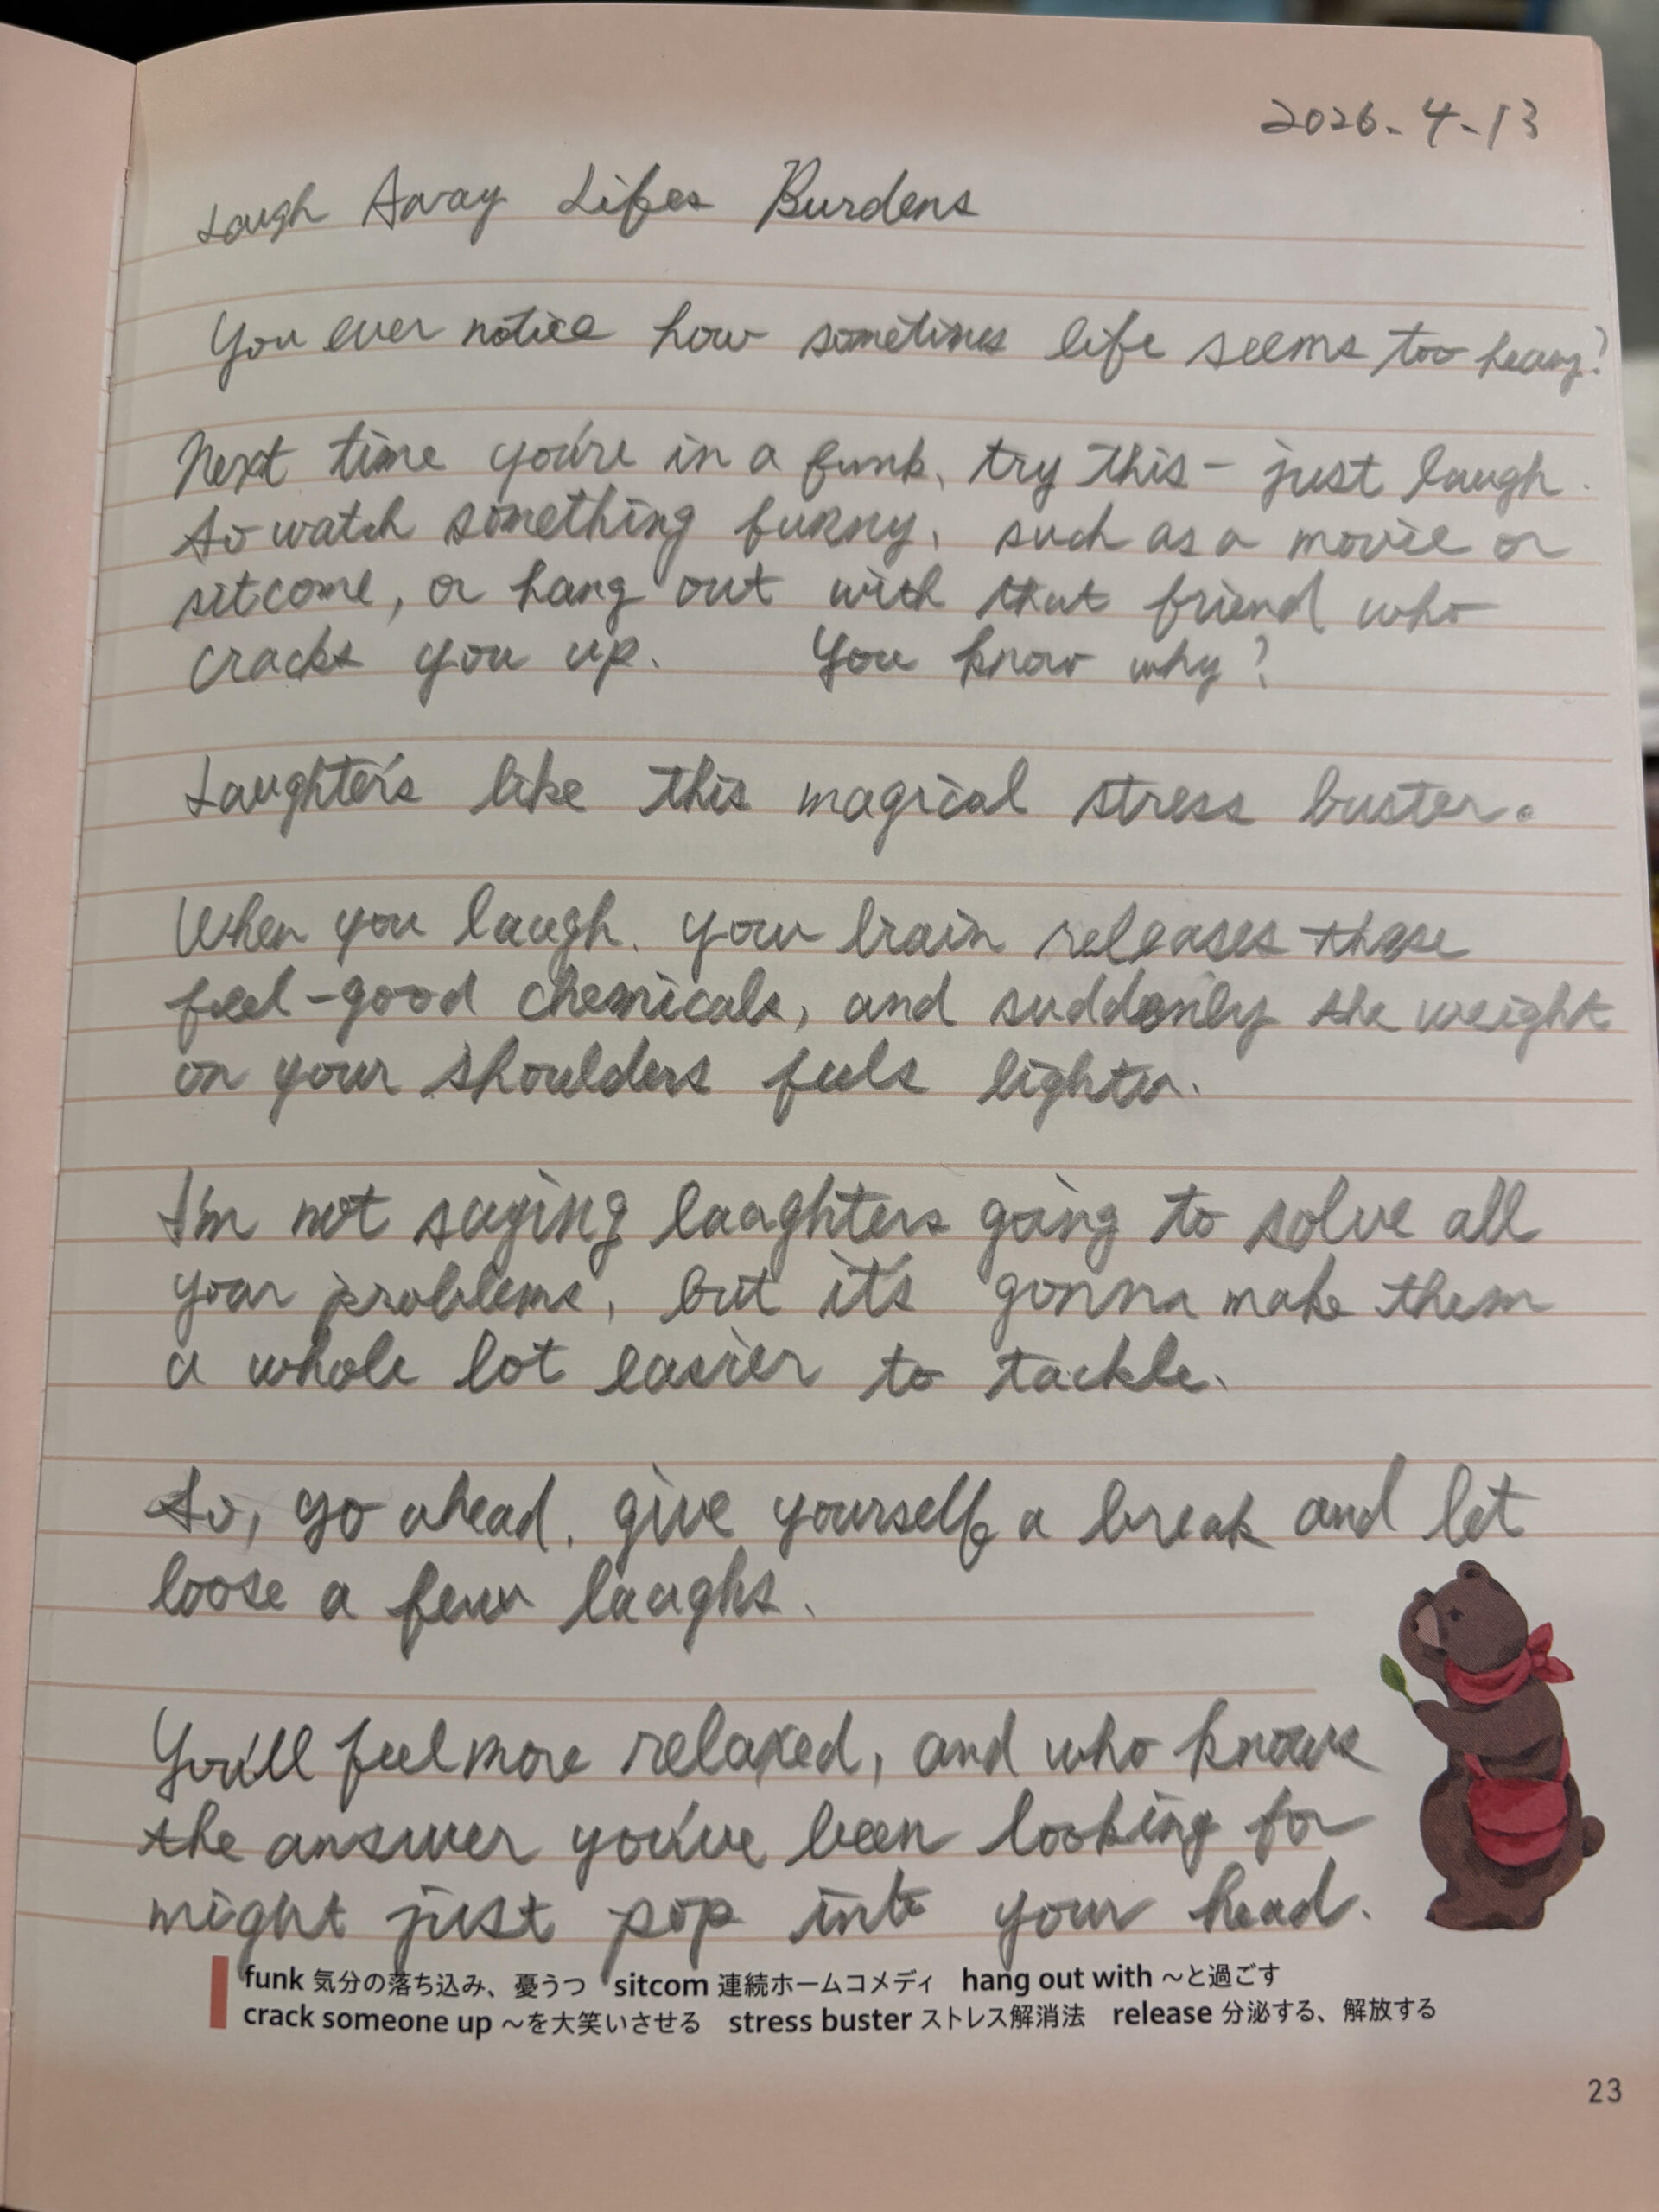 2026.4.13
Laugh Away Lifes Burdens
You ever notice how sometimes life seems too heavy?
Next time you're in a funk, try this - just laugh.
So watch something funny, such as a movie or
sitcome, or hang out with that friend who
cracks you up. You know why?
Laughter's like this magical stress buster.
When you laugh, your brain releases those
feel-good chemicals, and suddenly the weight
on your shoulders feels lighter.
I'm not saying laughters going to solve all
your problems, but it's gonna make them
a whole lot easier to tackle.
So, go ahead, give yourself a break and let
loose a few laughs.
You'll feel more relaxed, and who knows
the answer you've been looking for
might just pop into your head.
funk 気分の落ち込み、憂うつ sitcom 連続ホームコメディ hang out with ～と過ごす
crack someone up ～を大笑いさせる stress buster ストレス解消法 release 分泌する、解放する
23